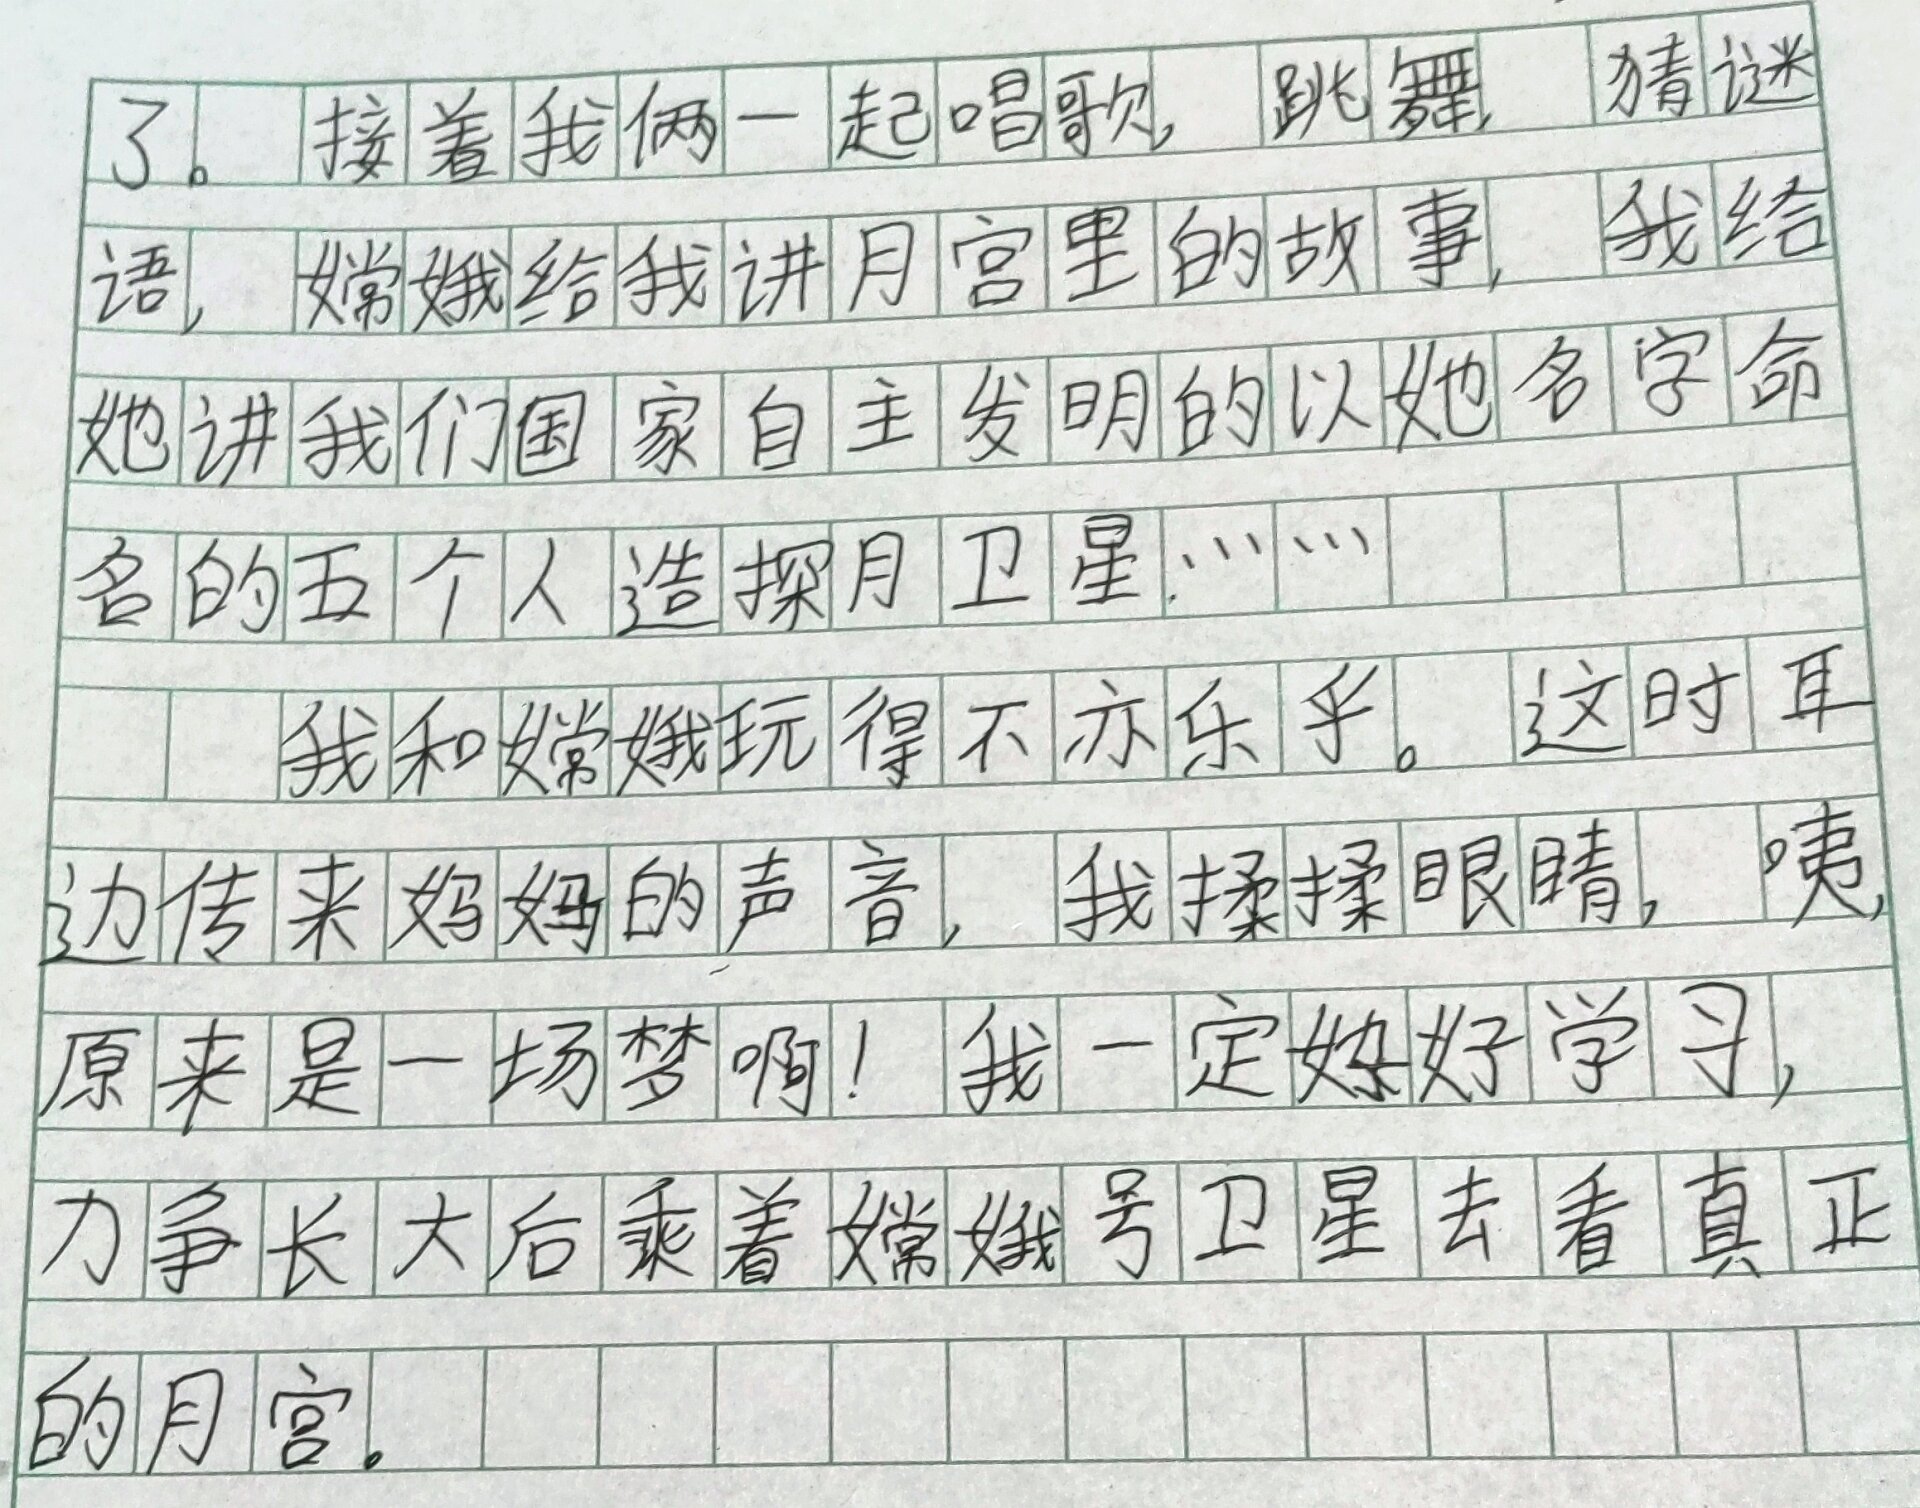 了。接着我俩一起唱歌，跳舞，猜谜
语，嫦娥给我讲月宫里的故事，我给
她讲我们国家自主发明的以她名字命
名的五个人造探月卫星……
我和嫦娥玩得不亦乐乎。这时耳
边传来妈妈的声音，我揉揉眼睛，咦，
原来是一场梦啊！我一定好好学习，
力争长大后乘着嫦娥号卫星去看真正
的月宫。